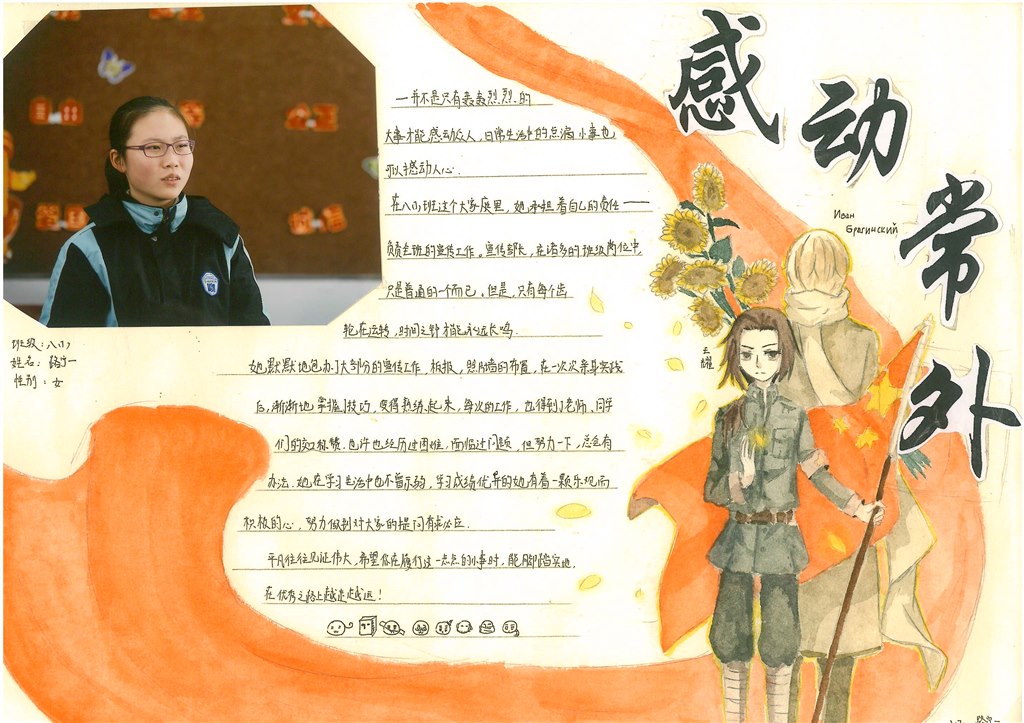 感动常外
一并不是只有轰轰烈烈的
大事才能感动众人，日常生活中的点滴小事也
可以撼动人心.
在八(1)班这个大家庭里，她承担着自己的责任——
负责全班的宣传工作。宣传部长，在诸多的班级岗位中，
只是普通的一个而已，但是，只有每个齿
轮在运转，时间之野才能永远长鸣.
她默默地包办了大部分的宣传工作，板报，照片墙的布置，在一次次亲身实践
后，渐渐地掌握了技巧，变得熟练起来，每次的工作，也得到了老师、同学
们的如称赞. 也许也经历过困难，面临过问题，但努力一下，总会有
办法. 她在学习生活中也不曾示弱，学习成绩优异的她有着一颗乐观而
积极的心，努力做到对大家的提问有求必应.
平凡往往见证伟大，希望你在履行这一点点的小事时，能脚踏实地，
在优秀之路上越走越远！
班级：八(1)
姓名：
性别：女
Иван
Брагинский
王耀